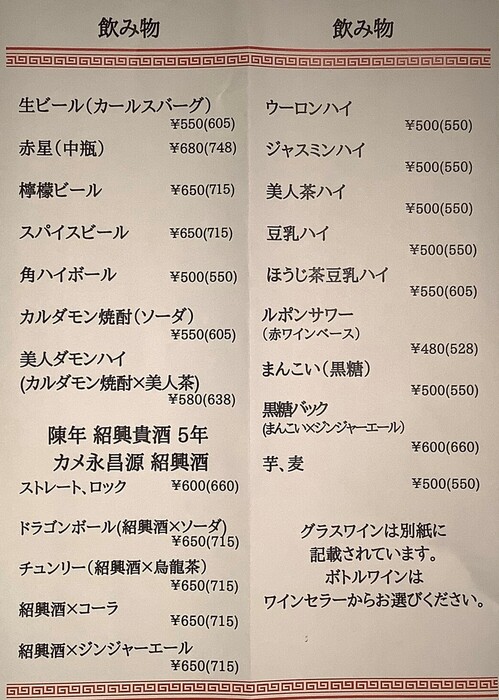 飲み物
生ビール(カールスバーグ)
¥550(605)
赤星(中瓶) ¥680(748)
檸檬ビール ¥650(715)
スパイスビール ¥650(715)
角ハイボール ¥500(550)
カルダモン焼酎(ソーダ)
¥550(605)
美人ダモンハイ
(カルダモン焼酎×美人茶)
¥580(638)
陳年 紹興貴酒 5年
カメ永昌源 紹興酒
ストレート、ロック ¥600(660)
ドラゴンボール(紹興酒×ソーダ)
¥650(715)
チュンリー(紹興酒×烏龍茶)
¥650(715)
紹興酒×コーラ
¥650(715)
紹興酒×ジンジャーエール
¥650(715)
飲み物
ウーロンハイ
¥500(550)
ジャスミンハイ
¥500(550)
美人茶ハイ
¥500(550)
豆乳ハイ
¥500(550)
ほうじ茶豆乳ハイ
¥550(605)
ルポンサワー
(赤ワインベース)
¥480(528)
まんこい(黒糖)
¥500(550)
黒糖バック
(まんこい×ジンジャーエール)
¥600(660)
芋、麦
¥500(550)
グラスワインは別紙に
記載されています。
ボトルワインは
ワインセラーからお選びください。